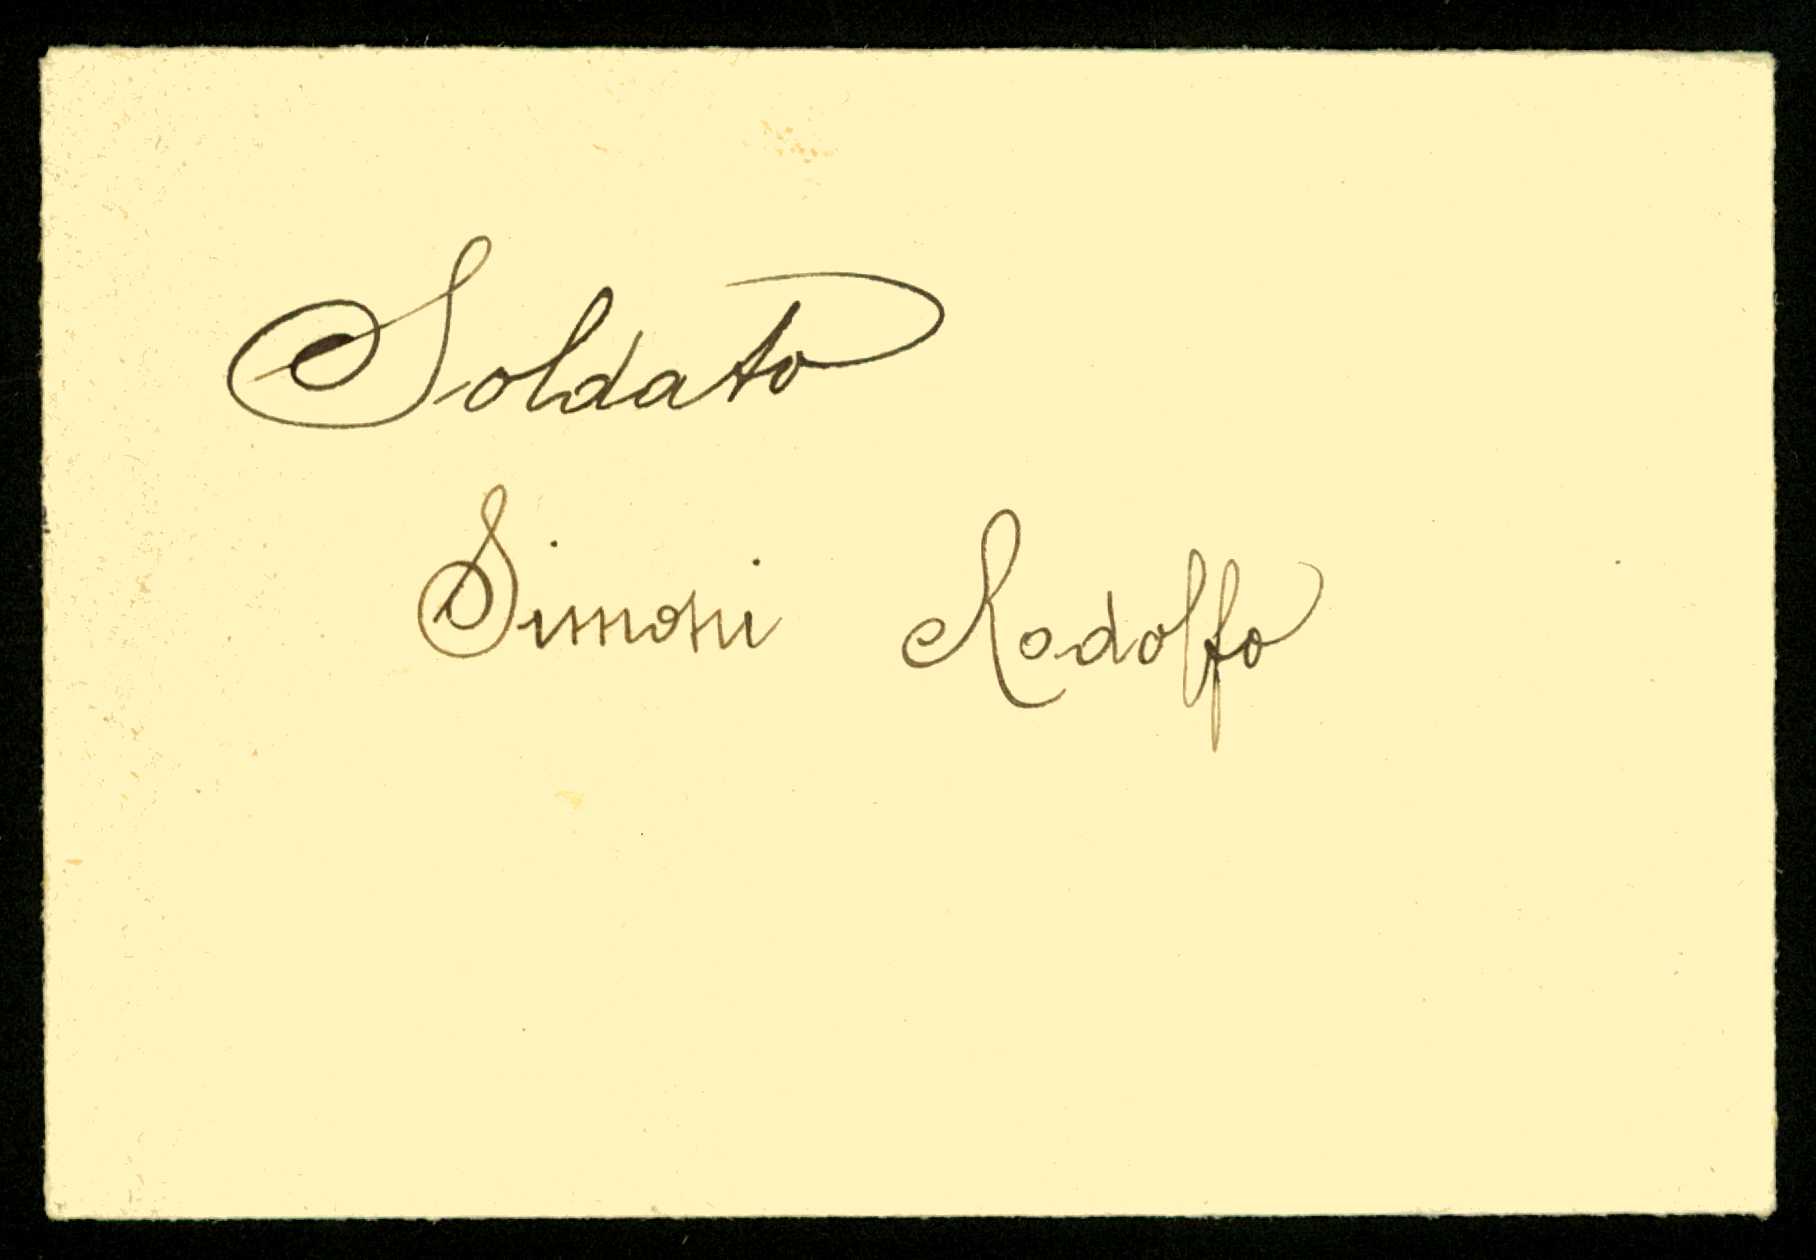 Soldato
Simoni Rodolfo